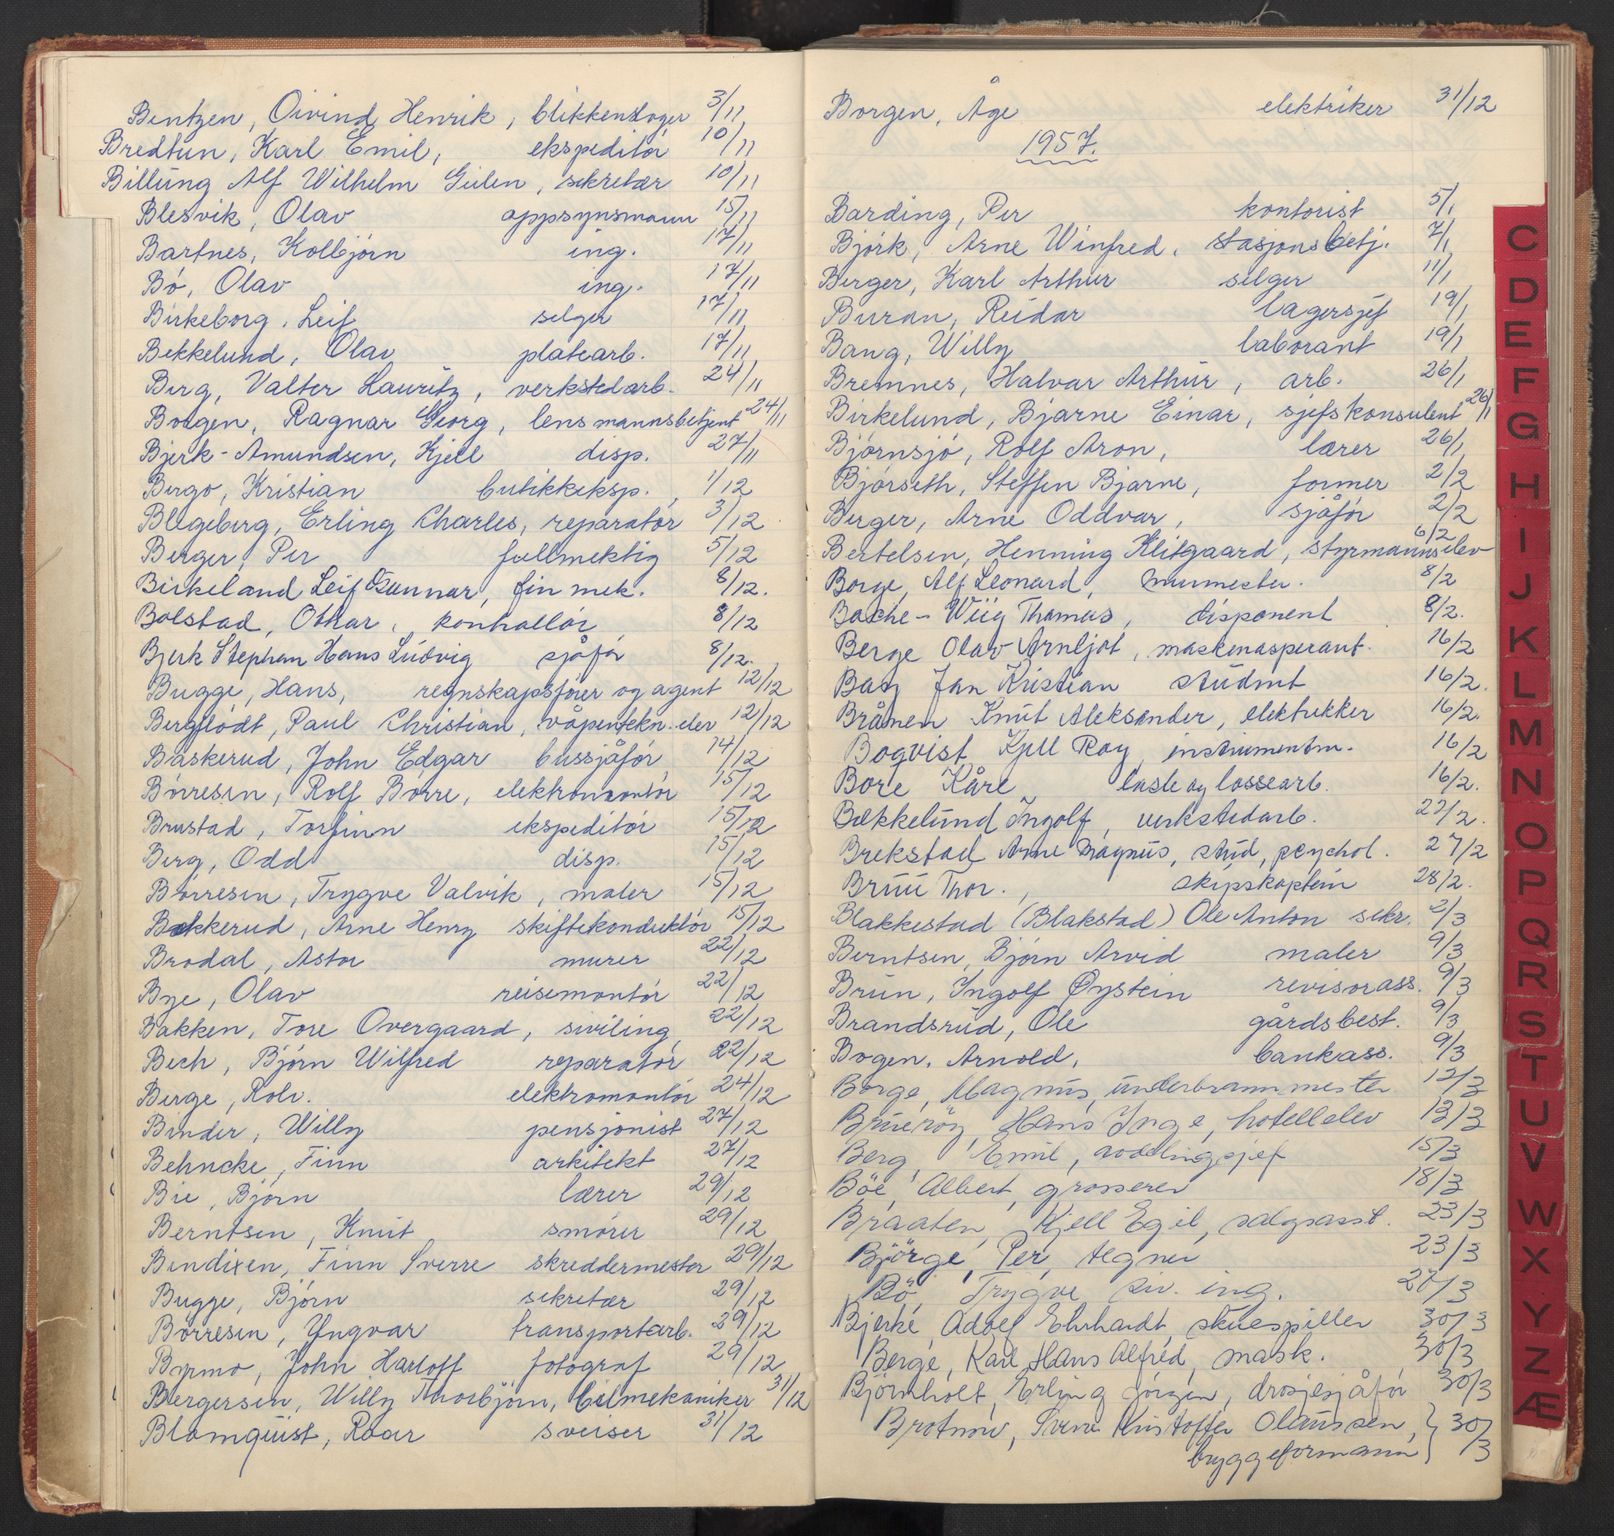 Bentzen, Oivind Henrik, blikkenslager 3/11
Bredtun, Karl Emil, ekspeditór 10/11
Billung Alf Wilhelm Gulen, sekretær 10/11
Blesvik, Olav oppsynsmann 15/11
Bartnes, Kolbjórn ing. 17/11
Bó, Olav ing. 17/11
Birkeborg, Leif selger 17/11
Bekkelund, Olav platearb. 17/11
Berg, Valter Lauritz, verkstedarb. 24/11
Borgen, Ragnar Georg, lensmannsbetjent 24/11
Bjerk-Amundsen, Kjell disp. 27/11
Bergo, Kristian butikkeksp. 1/12
Blegeberg, Erling Charles, reparatór 3/12
Berger, Per fullmektig 5/12
Birkeland Leif Gunnar, fin mek. 8/12.
Bolstad, Othar, kontrollór 8/12
Bjerk Stephan Hans Ludvig sjåfór 8/12.
Bugge, Hans, regnskapsfórer og agent 12/12
Bergflódt, Paul Christian, våpentekn. elev 12/12
Baskerud, John Edgar bussjåfór 14/12
Bórresen, Rolf Bórre, elektromontór 15/12
Brustad, Torfinn ekspeditór 15/12
Berg, Odd disp. 15/12
Bórresen, Trygve Valvik, maler 15/12
Bakkerud, Arne Henry skiftekonduktór 15/12
Brodal, Astor murer 22/12
Bye, Olav reisemontór 22/12
Bakken, Tore Overgaard, siviling. 22/12
Bech, Bjórn Wilfred reparatór 22/12
Berge, Rolv. elektromontór 24/12
Binder, Willy pensjonist 27/12
Behncke, Finn arkitekt 27/12
Bie, Bjórn lærer 29/12
Berntsen, Knut smórer 29/12
Bendixen, Finn Sverre skreddermester 29/12
Bugge, Bjórn sekretær 29/12
Bórresen, Yngvar transportarb. 29/12
Brymo, John Harloff fotograf 29/12
Bergersen, Willy Thorbjörn, bilmekaniker 31/12
Blomquist, Roar sveiser 31/12
Borgen, Åge elektriker 31/12
1957.
Barding, Per kontorist 5/1
Bjórk, Arne Winfred, stasjonsbetj. 7/1
Berger, Karl Arthur selger 11/1
Buran, Reidar lagersjef 19/1
Bang, Willy laborant 19/1
Bremnes, Halvar Arthur, arb. 26/1
Birkelund, Bjarne Einar, sjefskonsulent 26/1
Bjórnsjó, Rolf Aron, lærer 26/1
Bjórseth, Steffen Bjarne, former 2/2
Berger, Arne Oddvar, sjåfór 2/2
Bertelsen, Henning Klitgaard, styrmannselev 6/2
Borge, Alf Leonard, murmester. 8/2
Bache-Wiig Thomas, disponent 8/2.
Berge Olav Arnljot, maskinaspirant. 16/2
Bay Jan Kristian student 16/2.
Brånen Knut Aleksander, elektrikker 16/2.
Boqvist, Kjell Roy, instrumentm. 16/2
Bore Kåre laste og lossearb. 16/2.
Bækkelund Ingolf, verkstedarb. 22/2.
Brekstad Arne Magnus, stud, psychol. 27/2
Bruu Thor., skipskaptein 28/2.
Blakkestad (Blakstad) Ole Anton sekr. 2/3
Berntsen, Bjórn Arvid maler 9/3
Brun, Ingolf Øystein revisorass. 9/3
Brandsrud, Ole gårdsbest. 9/3
Bogen, Arnold, bankass. 9/3
Borge, Magnus, underbrannmester 12/3
Brueróy, Hans Inge, hotellelev 13/3
Berg, Emil, avdelingssjef 15/3
Böe, Albert, grosserer 18/3
Braaten, Kjell Egil, salgsasst. 23/3
Björge, Per, tegner 23/3
Bö Trygve siv. ing. 27/3
Bjerke, Adolf Ehrhardt, skuespiller 30/3
Berge, Karl Hans Alfred, mask. 30/3
Björnholt, Erling Jörgen, drosjesjåför 30/3
Brotnow, Svend Kristoffer Olaussen, } 30/3
byggeformann
C
D
E
F
G
H
I
J
K
L
M
N
O
P
Q
R
S
T
U
V
W
X
Y
Z
Æ